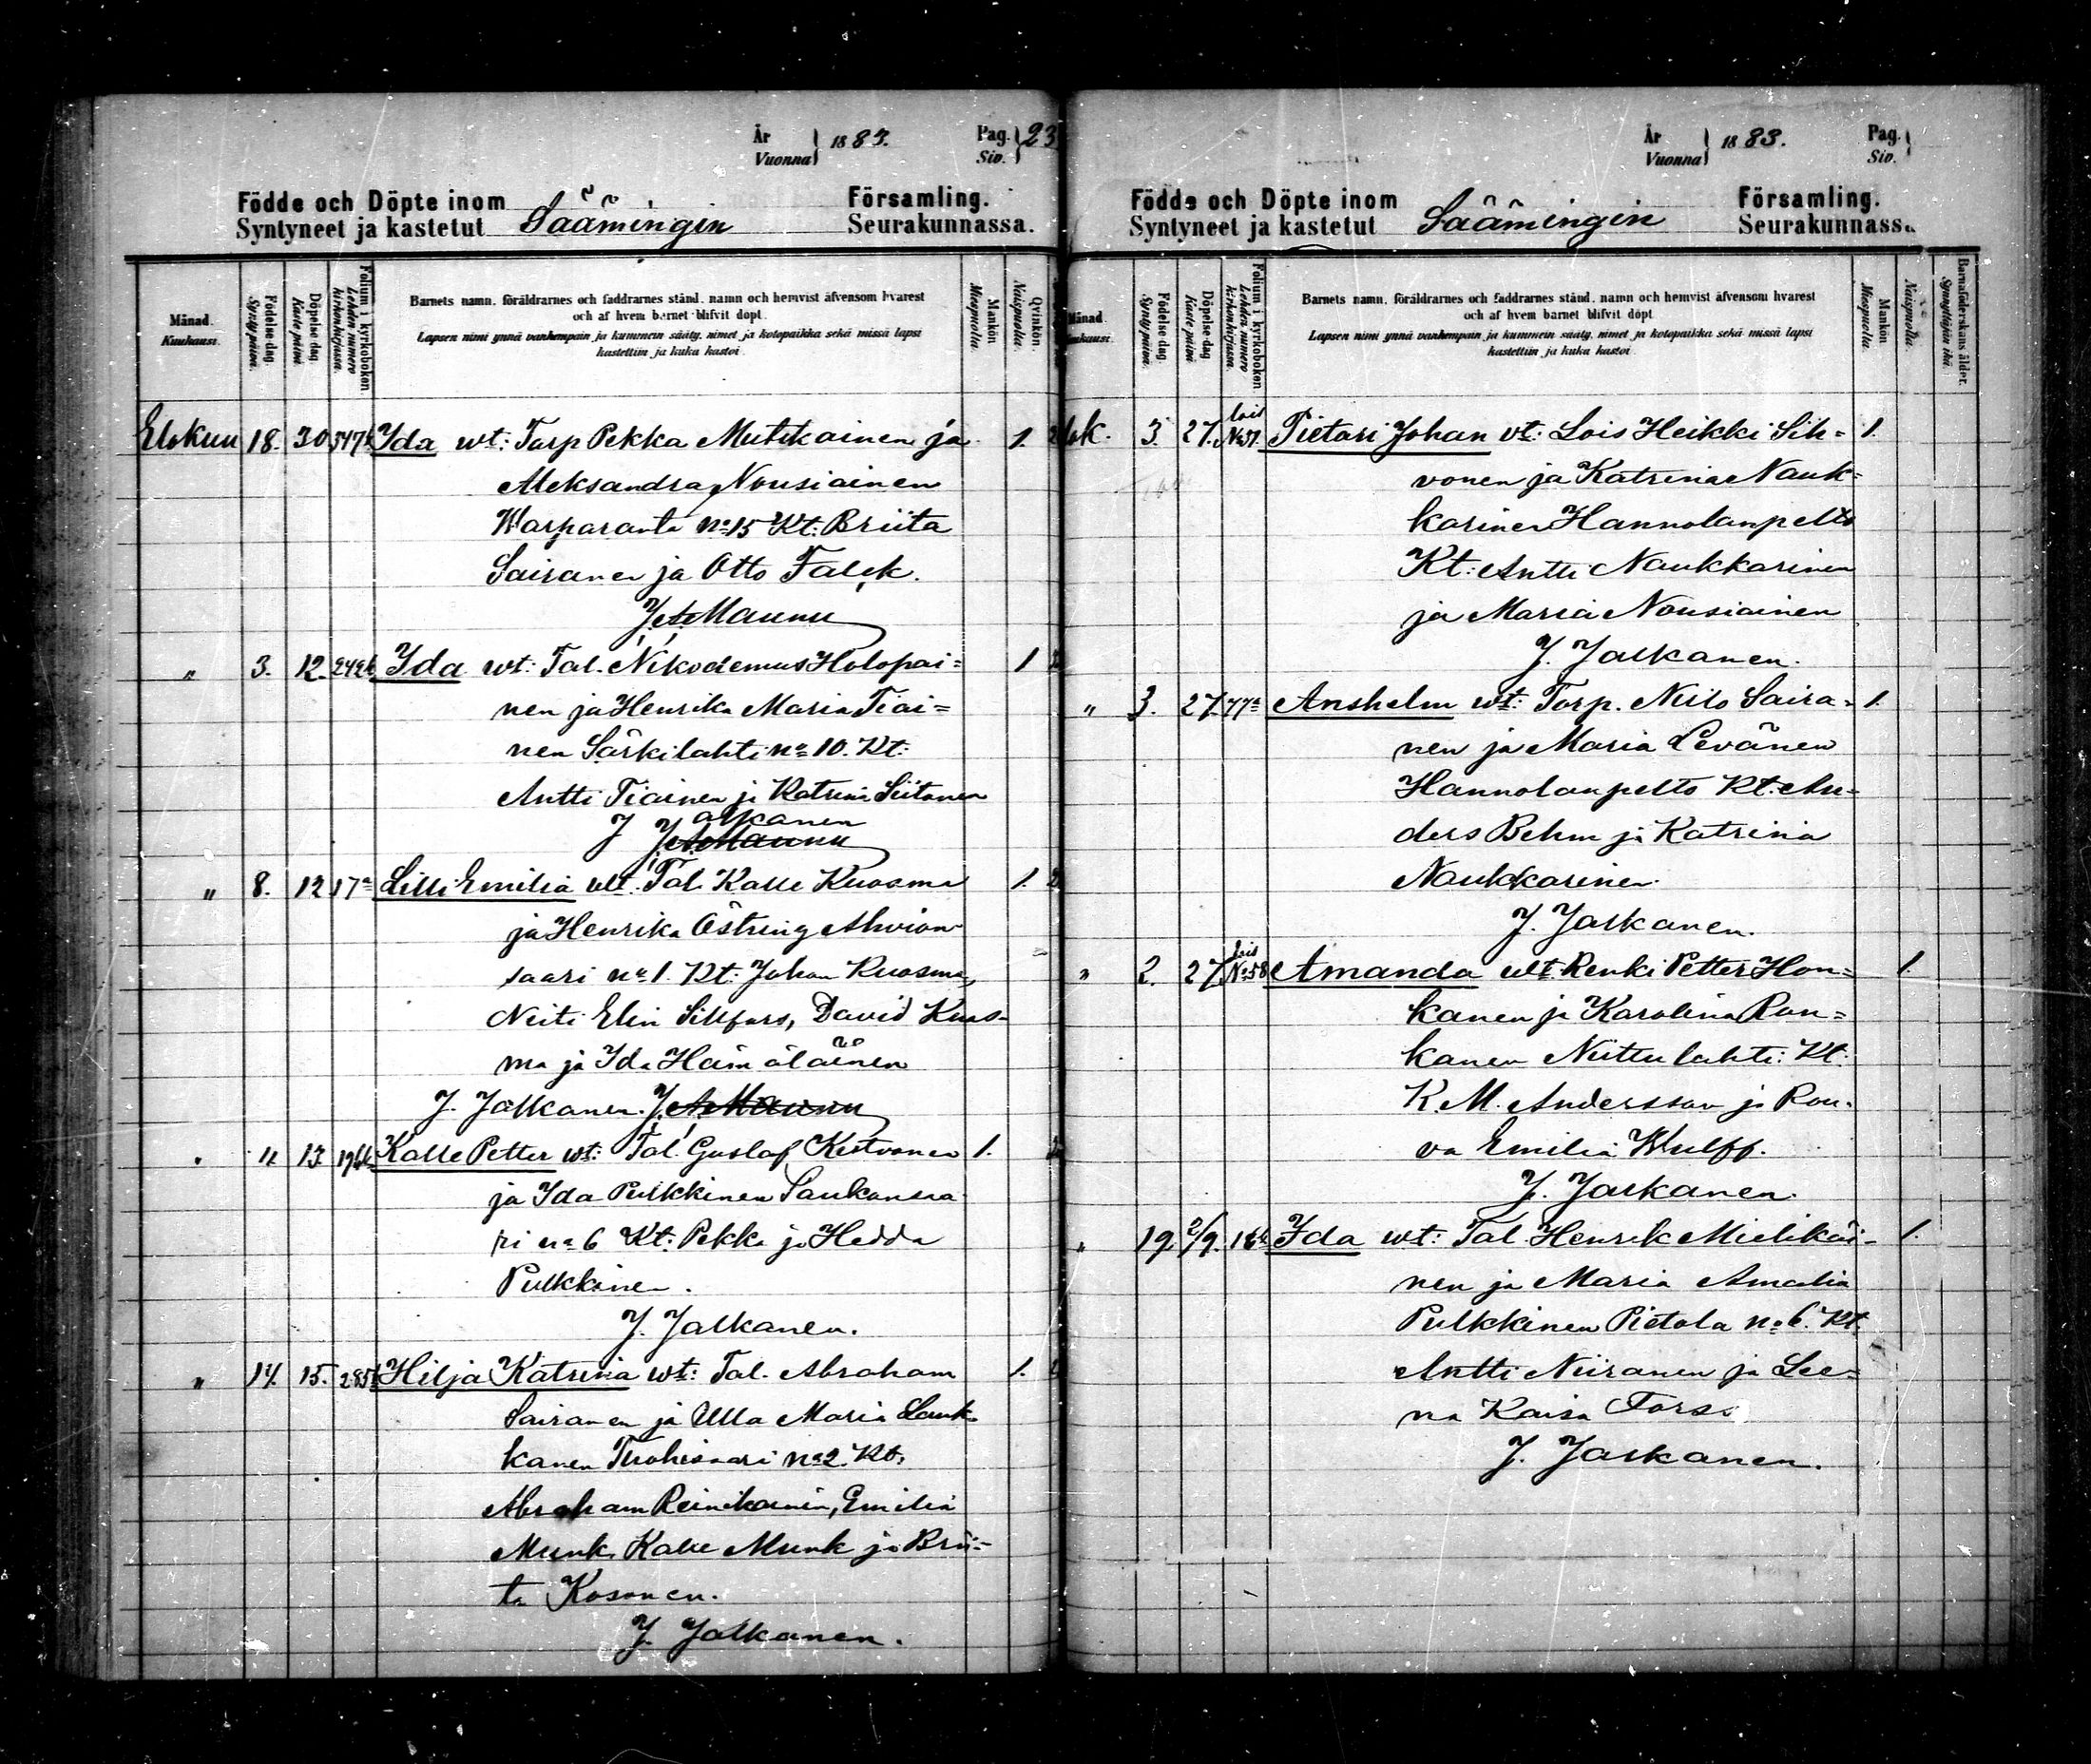 År
Vuonna } 1883. Pag.
Siv. } 23
Födde och Döpte inom Församling.
Syntyneet ja kastetut Säämingin Seurakunnassa.
Månad. Kuukausi. Födelse-dag. Synty päivä. Döpelse-dag. Kaste päivä. Folium i kyrkoboken. Lehden numero kirkonkirjassa. Barnets namn, föräldrarnes och faddrarnes stånd, namn och hemvist äfvensom hvarest
och af hvem barnet blifvit döpt.
Lapsen nimi ynnä vanhempain ja kummein sääty, nimet ja kotopaikka sekä missä lapsi
kastettiin ja kuka kastoi.
Mankön Miespuolia. Qvinkön. Naispuolia.
Elokuu 18. 30 347 Ida wt: Torp Pekka Mutikainen ja 1.
Aleksandra Nousiainen
Warparanta No 15 Kt: Briita
Sairanen ja Otto Falck.
J. A. Maunu
" 3. 12. 242b Ida wt: Tal. Nikodemus Holopai= 1
nen ja Henrika Maria Tiai=
nen Särkilahti no 10. Kt:
Antti Tiainen ja Katrina Siitonen
J Jalkanen J. A. Maunu
" 8. 12 17a Lilli Emilia wlt: Tal. Kalle Kuosma 1.
ja Henrika Östring Ahvion
saari no 1. Kt: Johan Kuosma,
Neiti Elin Sillfors, David Kuos-
ma ja Ida Hämäläinen
J. Jalkanen. J. A. Maunu
" 11 13 Kalle Petter wt: Tal. Gustaf Kestvonen 1.
ja Ida Pulkkinen Saukonsaa
ri no 6 Kt: Pekka ja Hedda
Pulkkinen.
J. Jalkanen.
" 14. 15. 285 Hilja Katrina wt: Tal. Abraham 1.
Sairanen ja Ulla Maria Lauk-
kanen Tuohisaari No 2. Kt.
Abraham Reinikainen, Emilia
Munk Kalle Munk ja Brii=
ta Kosonen.
J. Jalkanen.
År
Vuonna } 1883. Pag.
Siv. }
Födde och Döpte inom Församling.
Syntyneet ja kastetut Säämingin Seurakunnassa.
Månad. Kuukausi. Födelse-dag. Synty päivä. Döpelse-dag. Kaste päivä. Folium i kyrkoboken. Lehden numero kirkonkirjassa. Barnets namn, föräldrarnes och faddrarnes stånd, namn och hemvist äfvensom hvarest
och af hvem barnet blifvit döpt.
Lapsen nimi ynnä vanhempain ja kummein sääty, nimet ja kotopaikka sekä missä lapsi
kastettiin ja kuka kastoi.
Mankön Miespuolia. Naispuolia. Barnaföderskans ålder. Synnyttäjän ikä.
lok. 3. 27. lois No 57. Pietari Johan vt: Lois Heikki Sih= 1.
vonen ja Katrina Nauk=
karinen Hannolanpelto
Kt: Antti Naukkarinen
ja Maria Nousiainen
J. Jalkanen.
" 3. 27. 77a Anshelm wt: Torp. Niilo Saira= 1.
nen ja Maria Levänen
Hannolanpelto Kt. An=
ders Behm ja Katrina
Naukkarinen.
J. Jalkanen.
" 2. 27. lois No 58 Amanda wlt: Renki Petter Hon= 1.
kanen ja Karolina Ron=
kanen Niittulahti: Kt:
K. M. Andersson ja Rou-
va Emilia Wulff.
J. Jalkanen.
" 19. 2/9. Ida wt: Tal Henrik Mielikäi- 1.
nen ja Maria Amalia
Pulkkinen Pietola No 6. Kt.
Antti Niiranen ja Lee=
na Kaisa Forss
J. Jalkanen.